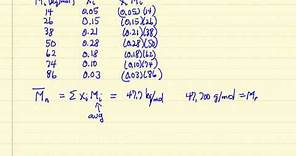 Mi (kg/mol) xi xi Mi
14 0.05 (0.05)(14)
26 0.15 (0.15)(26)
38 0.21 (0.21)(38)
50 0.28 (0.28)(50)
62 0.18 (0.18)(62)
74 0.10 (0.10)(74)
86 0.03 (0.03)(86)
M̅n = Σ xi Mi = 47.7 kg/mol 47,700 g/mol = Mr
avg